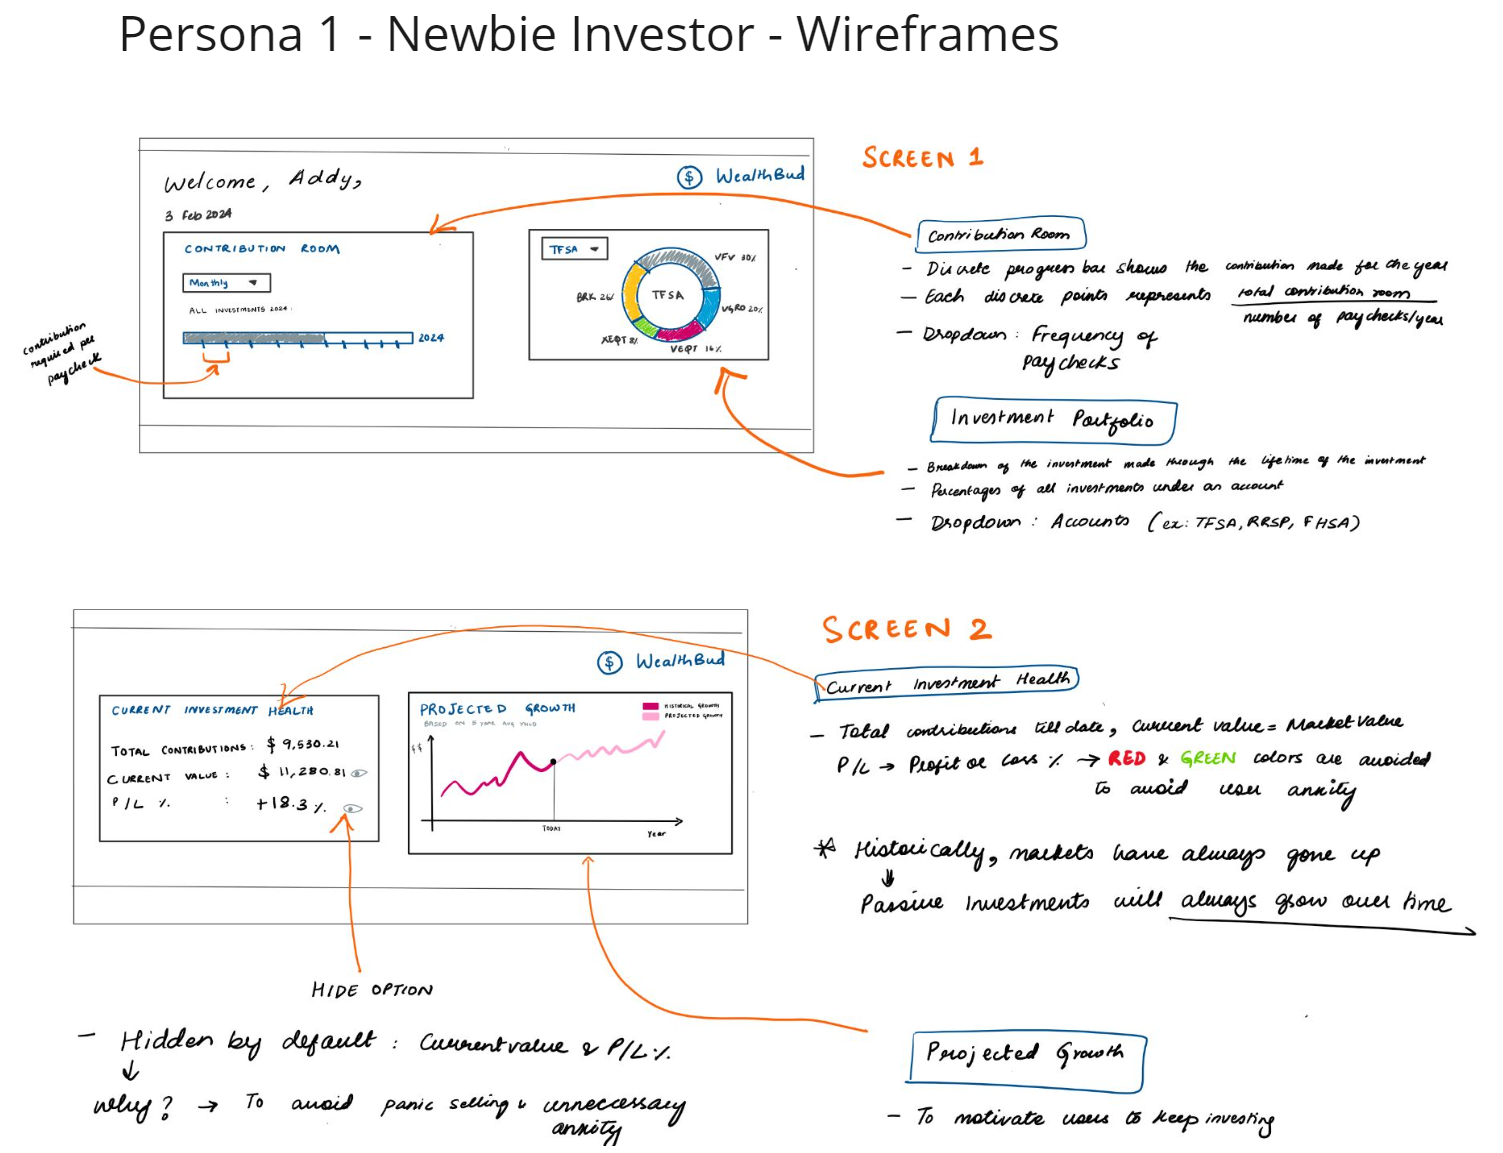 Persona 1 - Newbie Investor - Wireframes
SCREEN 1
Welcome, Addy,
$ WealthBud
3 Feb 2024
CONTRIBUTION ROOM
Monthly
ALL INVESTMENTS 2024:
2024
contribution
required per
paycheck
TFSA
TFSA
VFV 30%
VGRO 20%
VEQT 16%
XEQT 8%
BRK 26%
Contribution Room
- Discrete progress bar shows the contribution made for the year
- Each discrete points represents total contribution room
number of paychecks/year
- Dropdown: Frequency of
Paychecks
Investment Portfolio
- Breakdown of the investment made through the lifetime of the investment
- Percentages of all investments under an account
- Dropdown: Accounts (ex: TFSA, RRSP, FHSA)
SCREEN 2
$ WealthBud
CURRENT INVESTMENT HEALTH
TOTAL CONTRIBUTIONS: $ 9,530.21
CURRENT VALUE: $ 11,280.81
P/L % : +18.3 %
PROJECTED GROWTH
BASED ON 5 YEAR AVG YIELD
HISTORICAL GROWTH
PROJECTED GROWTH
$$
TODAY
Year
Current Investment Health
- Total contributions till date, current value = Market Value
P/L → Profit or Loss % → RED & GREEN colors are avoided
to avoid user anxity
* Historically, markets have always gone up
↓
Passive Investments will always grow over time
HIDE OPTION
- Hidden by default: Current value & P/L %
↓
Why? → To avoid panic selling & unneccessary
anxity
Projected Growth
- To motivate users to keep investing